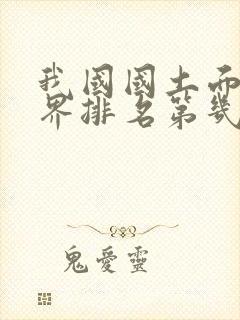 我國國土面
界排名第幾
鬼愛靈